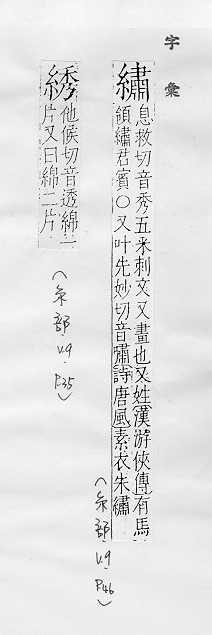 字彙
繡 息救切音秀五采刺文又畫也又姓漢游俠傳有馬
領繡君賓○又叶先妙切音嘯詩唐風素衣朱繡
(糸部 v.9 P.46)
綉 他侯切音透綿一
片又曰綿二片
(糸部 v.9 P.35)